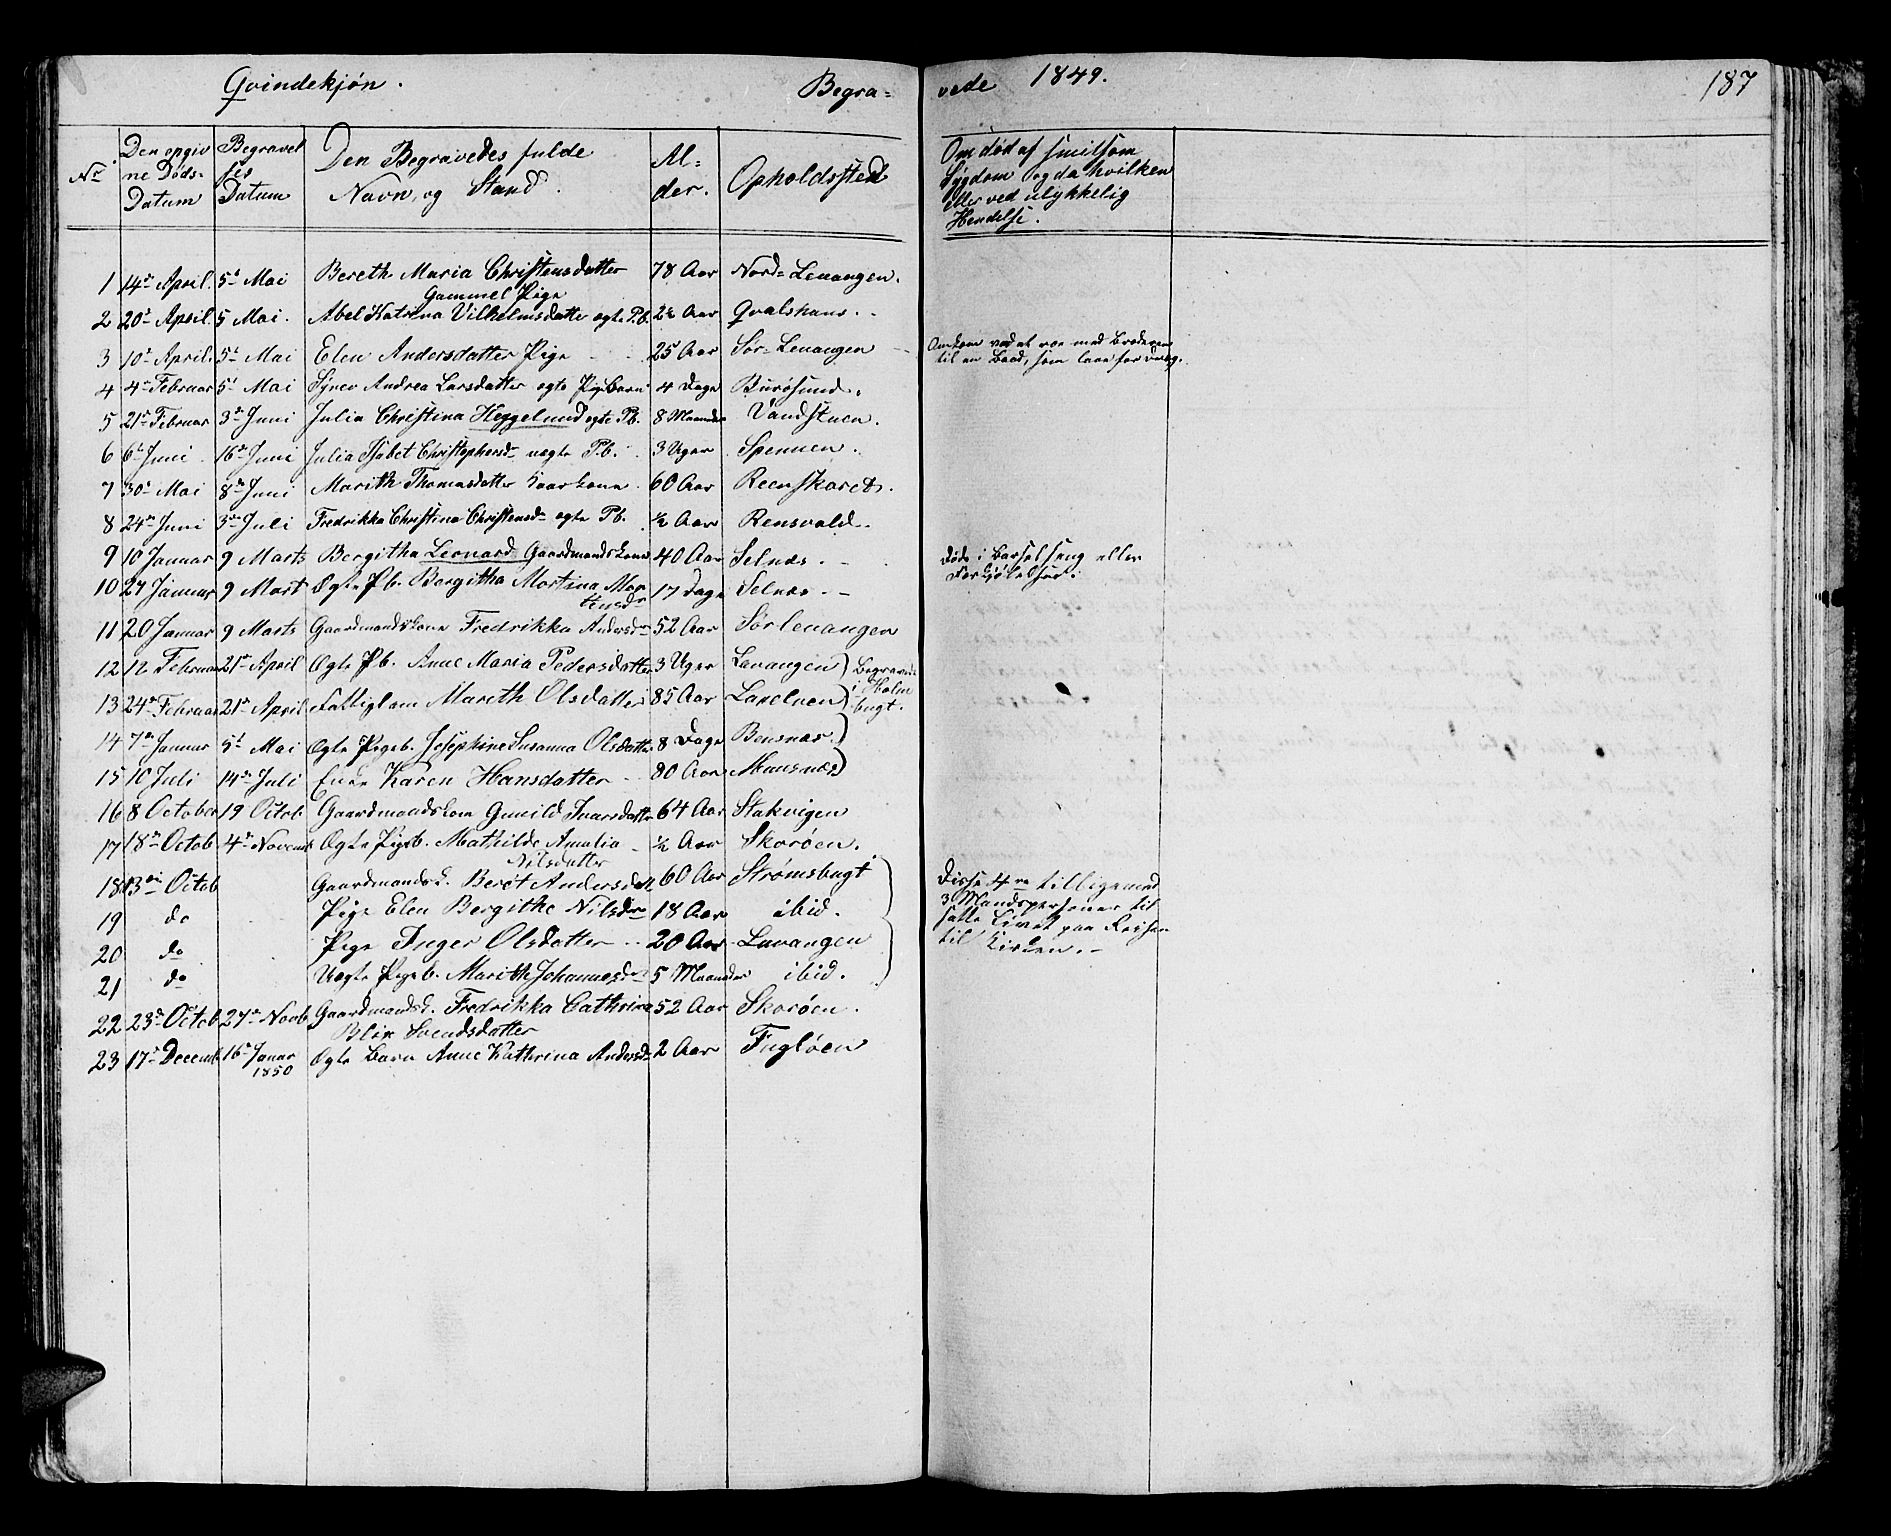 Qvindekjøn. Begra= vede 1849. 187
No Den opgivne Døds-Datum Begravelses Datum Den Begravedes fulde Navn, og Stand. Al=der. Opholdssted Om død af smitsom Sygdom og da hvilken eller ved ulykkelig Hendelse.
1 14de April. 5te Mai Bereth Maria Christensdatter 78 Aar Nord=Levangen.
Gammel Pige
2 20de April. 5 Mai. Abel Katrina Vilhelmsdatter ægte P.b. 2½ Aar Qvalshaus.
3 10de April. 5te Mai Elen Andersdatter Pige 25 Aar Sør=Levangen Omkom ved at roe med Broderen
til en Baad, som laae for
4 4de Februar 5te Mai Synev Andrea Larsdatter ægte Pigebarn 4 Dage Burøsund.
5 21de Februar 3de Juni Julia Christina Heggelund ægte Pb. 8 Maaneder Vandstuen.
6 6te Juni 16de Juni Julia Isabet Christophersdr uægte P.b. 3 Uger Spennen.
7 30te Mai 8de Juni Marith Thomasdatter Kaarkone 60 Aar Reenskaret.
8 24de Juni 3de Juli Fredrikka Christina Christensdr ægte Pb. ½ Aar Rensvold.
9 10 Januar 9 Marts Bergitha Leonard Gaardmandskone 40 Aar Selnæs. Døde i Barselseng eller
Forkjølelse.
10 27 Januar 9 Mart Ægte Pb. Bergitha Martina Mor
tensdr 17 Dage Selnæs.
11 20 Januar 9 Marts Gaardmandskone Fredrikka Andersdr 52 Aar Sørlevangen
12 12 Februar 21de April Ægte Pb. Anne Maria Pedersdatter 3 Uger Levangen Begravede
13 24de Februar 21de April Fattiglam Mareth Olsdatter 85 Aar Laxelven i Holm
bugt.
14 7de Januar 5te Mai Ægte Pigeb. Josephine Susanna Olsdatter. 8 Dage Bensnæs.
15 10 Juli 14de Juli Enke Karen Hansdatter 80 Aar Mansnæs
16 8 October 19 Octob Gaardmandskone Gunild Ivarsdatter 64 Aar Stakvigen
17 18de Octob 4de Novemb Ægte Pigeb. Mathilde Amalia ½ Aar Skorøen.
Nilsdatter
18 13de Octob Gaardmandsk. Beret Andersdatt 60 Aar Strømsbugt Disse 4re tilligemed
3 Mandspersoner til
19 do Pige Elen Bergithe Nilsdr 18 Aar ibid. satte Livet paa Reisen
20 do Pige Inger Olsdatter 20 Aar Levangen til Kirken.
21 do Uægte Pigeb. Marith Johannesdr 5 Maaneder ibid.
22 23de Octob 27de Novb Gaardmandsk. Fredrikka Cathrina 52 Aar Skorøen.
Blix Svendsdatter
23 17de Decemb 16de Januar 1850 Ægte Barn Anne Kathrina Andersdr 2 Aar Fugløen